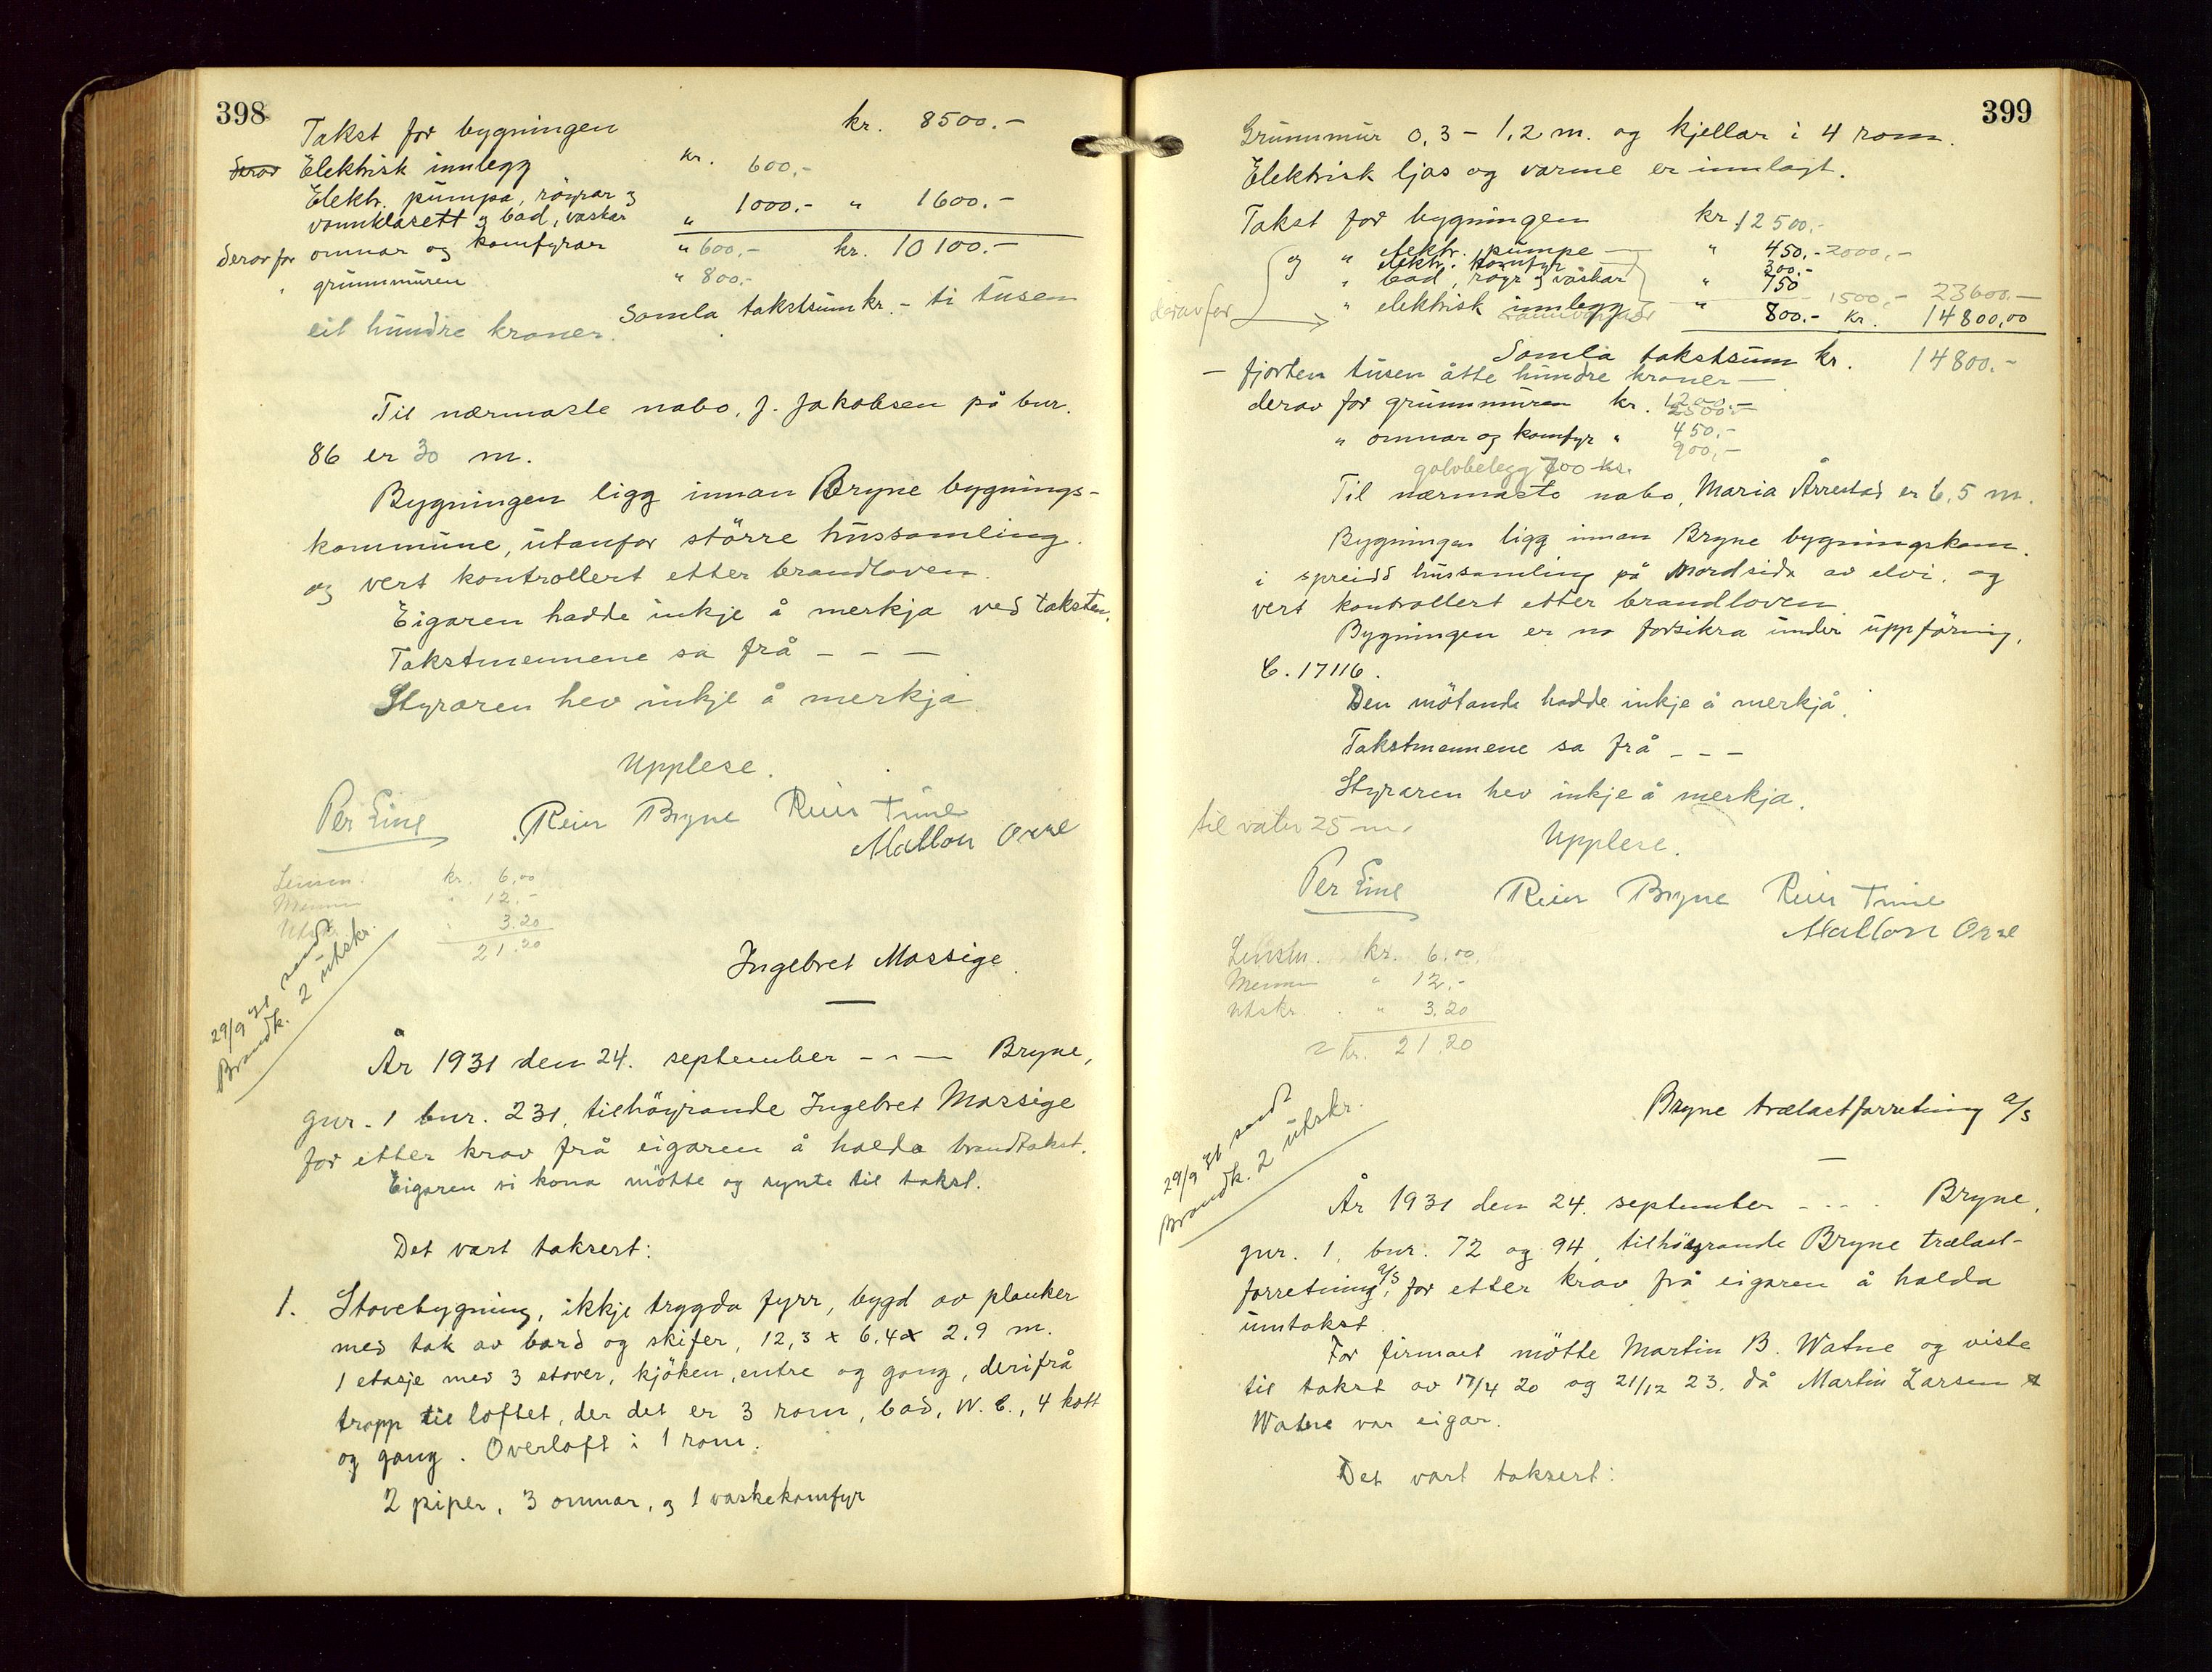 398
Takst for bygningen kr. 8500.-
derav Elektrisk innlegg kr. 600.-
Elektr. pumpa, röyrar og
vannklosett og bad, vaskar " 1000.- " 1600.-
derav for omnar og komfyrar " 600.- kr. 10100.-
" grunnmuren " 800.-
Samla takstsum kr. - ti tusen
eit hundre kroner.
Til nærmaste nabo, J. Jakobsen på bnr.
86 er 30 m.
Bygningen ligg innan Bryne bygnings-
kommune, utanfor större hussamling.
og vert kontrollert etter brandloven.
Eigaren hadde inkje å merkja ved taksten.
Takstmennene sa frå - - -
Styraren hev inkje å merkja.
Upplese.
Per Line Reier Bryne Reier Time
Mallon Orre
Lensm. kr. 6,00
Menn " 12.-
Utskr. " 3.20
21.20
29/9 31 sendt
Brandk. 2 utskr.
Ingebret Mossige.
År 1931 den 24. september - - - Bryne,
gnr. 1 bnr. 231, tilhöyrande Ingebret Mossige
for etter krav frå eigaren å halda brandtakst.
Eigaren si kona mötte og synte til takst.
Det vart taksert:
1. Stovebygning, ikkje trygda fyrr, bygd av planker
med tak av bord og skifer, 12,3 x 6,4 x 2,9 m.
1 etasje med 3 stover, kjöken, entre og gang, derifrå
tropp til loftet, der det er 3 rom, bad, W.C., 4 kott
og gang. Overloft i 1 rom.
2 piper, 3 omnar, og 1 vaskekomfyr
399
Grunnmur 0,3 - 1,2 m. og kjellar i 4 rom.
Elektrisk ljos og varme er innlagt.
Takst for bygningen kr. 12500.-
og " elektr. pumpe " 450.- 2000,-
" elektr. komfyr 300.-
" bad, röyr og vaskar " 750
derav for " elektrisk innlegg " 800.- 1500,- 23600.-
kr. 14800,00
Samla takstsum kr. 14800.-
- fjorten tusen åtte hundre kroner -
derav for grunnmuren kr. 1200.- 2500.-
" omnar og komfyr " 450.- 900,-
golvbelegg 700 kr.
Til nærmaste nabo, Maria Årrestad er 6,5 m.
Bygningen ligg innan Bryne bygningskom.
i spreidd hussamling på Nordsida av elvi, og
vert kontrollert etter brandloven.
Bygningen er no forsikra under uppföring,
C. 17116.
Den mötande hadde inkje å merkja.
Takstmennene sa frå - - -
Styraren hev inkje å merkja.
til vatn 25 m.
Upplese.
Per Line Reier Bryne Reier Time
Mallon Orre
Lensm. kr. 6.00
Menn " 12.-
Utskr. " 3.20
kr. 21.20
29/9 31 sendt
Brandk. 2 utskr.
Bryne trælastforretning a/s
År 1931 den 24. september - - - Bryne,
gnr. 1, bnr. 72 og 94, tilhöyrande Bryne trælast-
forretning a/s, for etter krav frå eigaren å halda
umtakst.
For firmaet mötte Martin B. Watne og viste
til takst av 17/4 20 og 21/12 23. då Martin Larsen
Watne var eigar.
Det vart taksert: